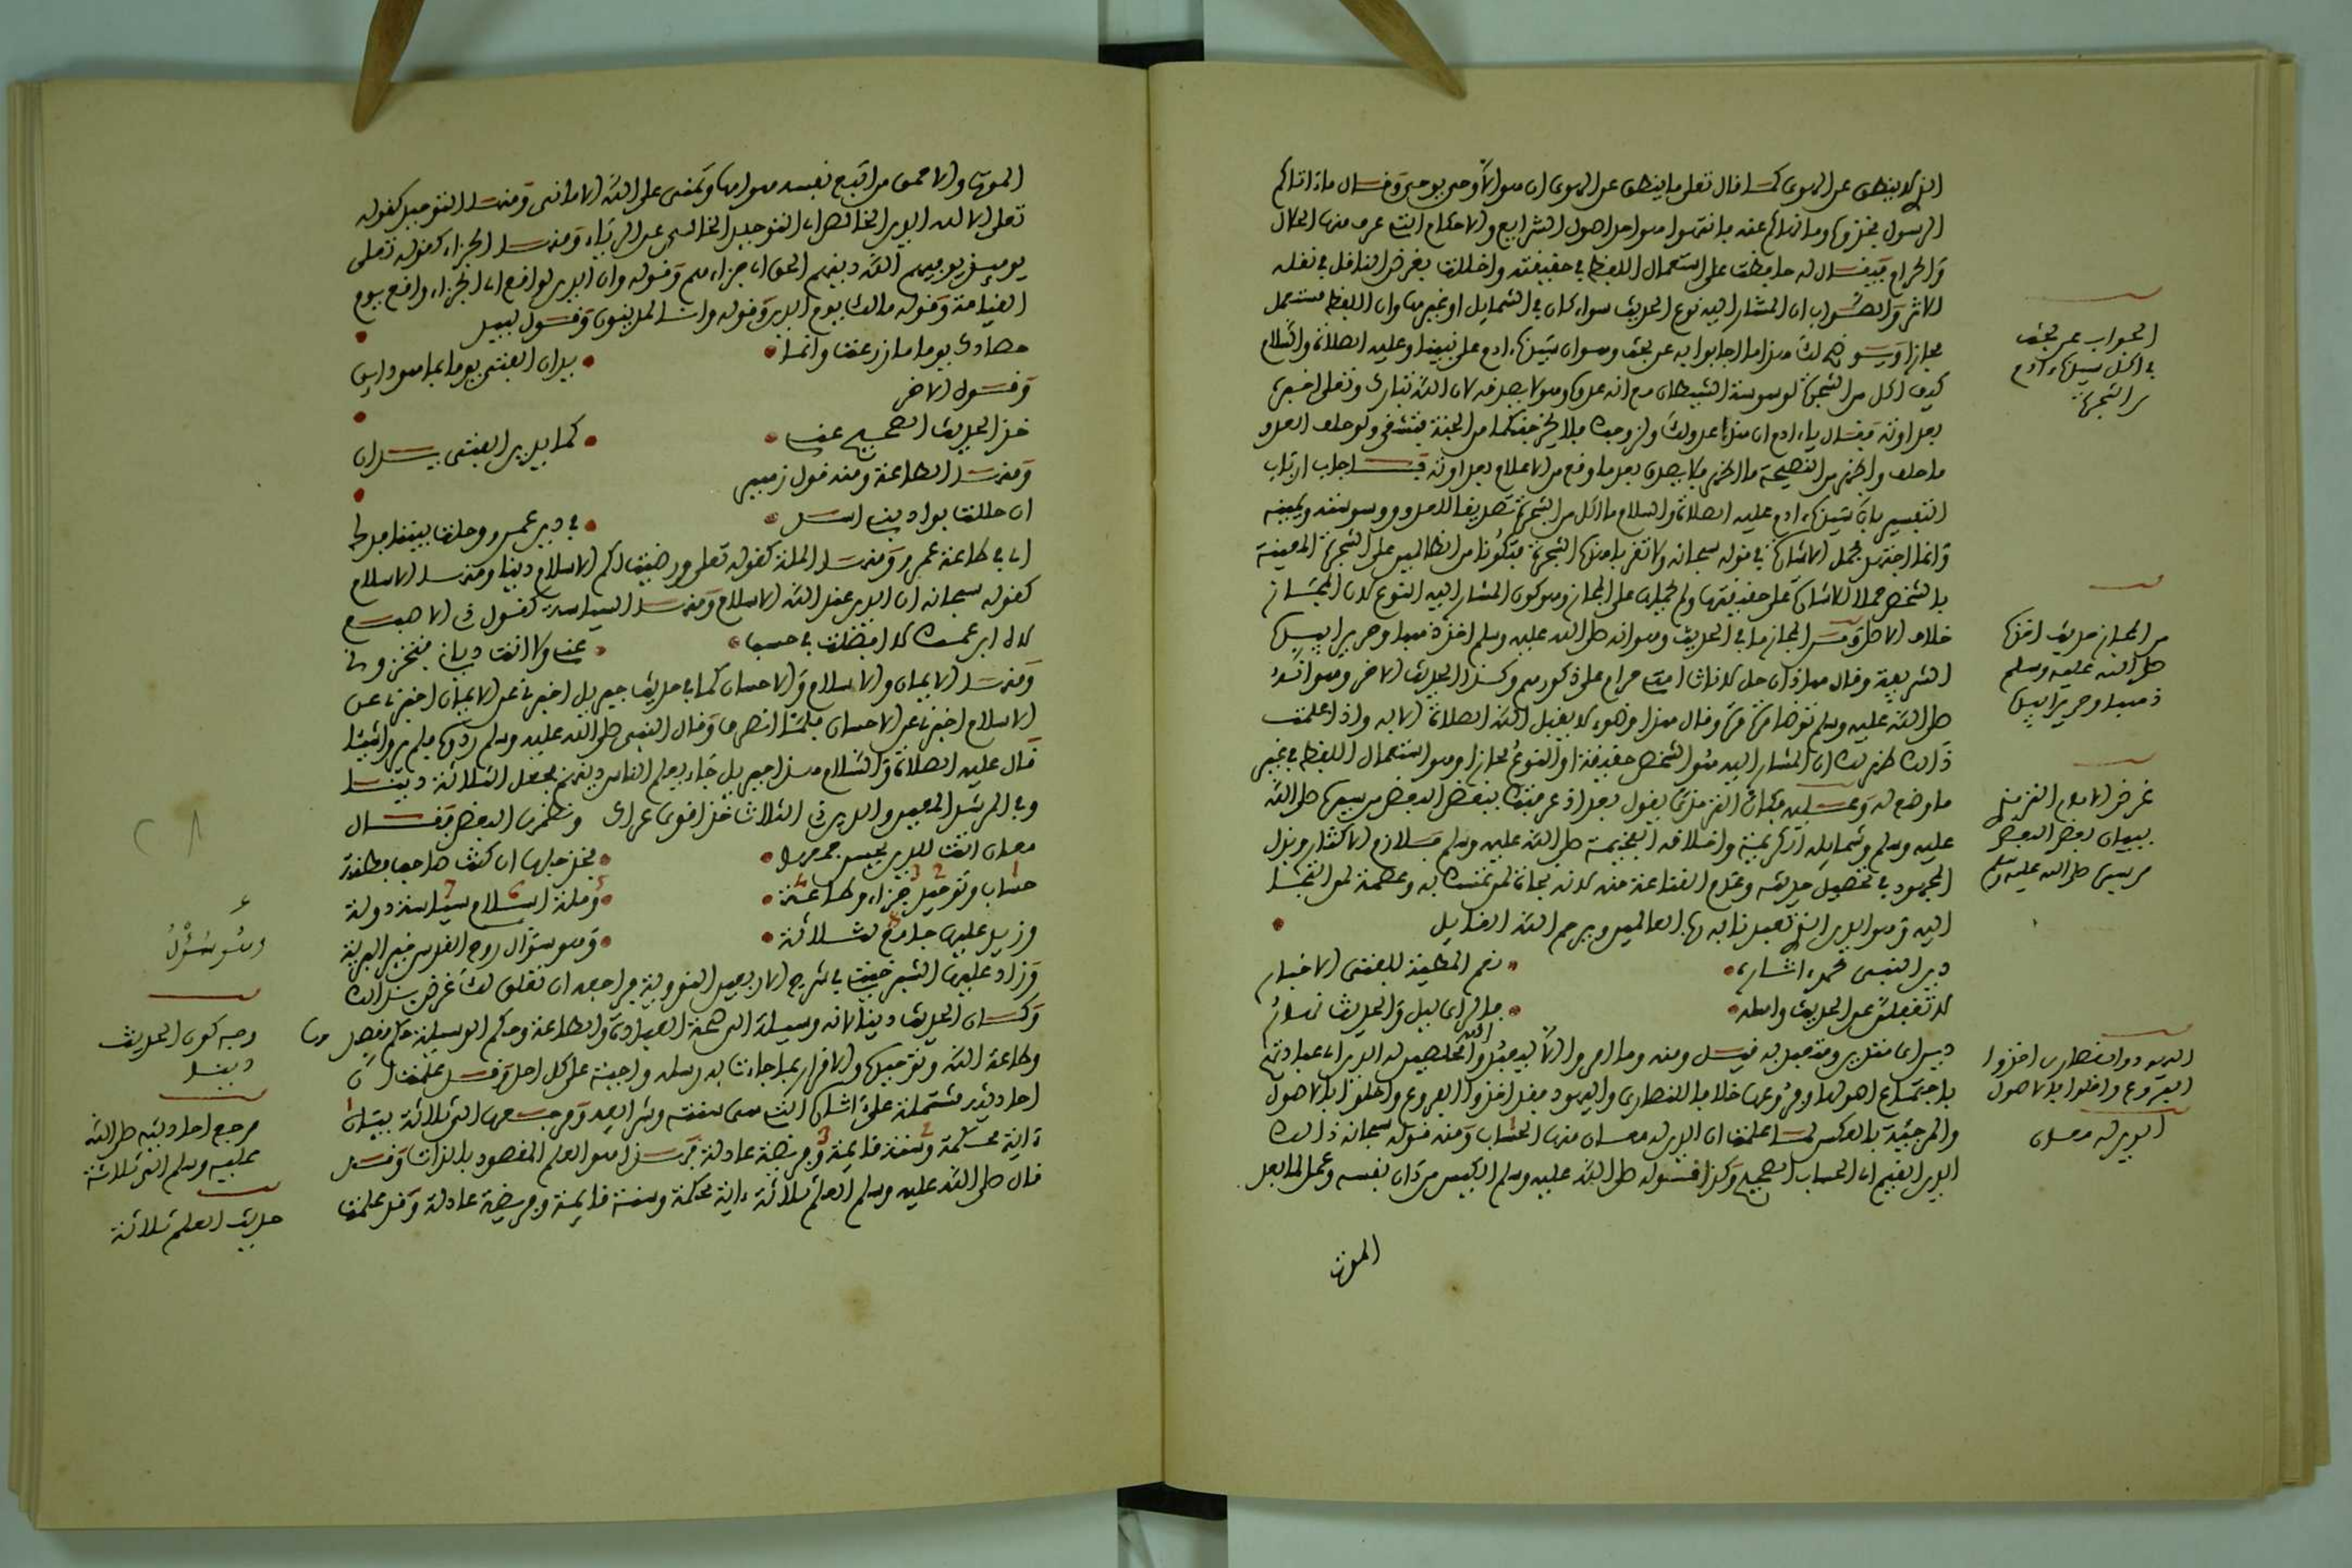 الذي لا ينطق عن الهوى كما قال تعلى ما ينطق عن الهوى ان هو الا وحي يوحى وقال ما ءاتاكم
الرسول فخذوه وما نهاكم عنه فانتهوا هو اصل اصول الشرايع والاحكام الذي عرف منها الحلال
والحرام فيقال له حافظت على استعمال اللفظ في حقيقته واخللت بغرض الناقل في نقله
الاثر والصواب ان المشار اليه نوع الحديث سواء كان في الشمايل او غيرها وان اللفظ مستعمل
مجازا ويشوش لك هذا ما اجابوا به عن بحث وهو ان سيدنا ءادم على نبينا وعليه الصلاة والسلام
كيف اكل من الشجرة لوسوسة الشيطان مع انه عدو وهو لا يصدقه لان الله تبارك وتعلى اخبره
بعداوته فقال يا ءادم ان هذا عدو لك ولزوجك فلا يخرجنكما من الجنة فتشقى ولو حلف العدو
ما حلف والخبر من النصيحة ما الخبر فلا يصدق بعد ما وقع من الاعلام بعداوته فاجاب ارباب
التفسير بان سيدنا ءادم عليه الصلاة والسلام ما اكل من الشجرة تصديقا للعدو ووسوسته ويمينه
وانما اجتهد فحمل الاشارة في قوله سبحانه ولا تقربا هذه الشجرة فتكونا من الظالمين على الشجرة المعينة
بالشخص حملا للاشارة على حقيقتها ولم يحملها على المجاز وهو كون المشار اليه النوع لان المجاز
خلاف الاصل ومن المجاز ما في الحديث وهو انه صلى الله عليه وسلم اخذ ذهبا وحريرا بيده
الشريفة وقال هذان حل لاناث امتي حرام على ذكورهم وكذا الحديث الاخر وهو انه
صلى الله عليه وسلم توضا مرة مرة وقال هذا وضوء لا يقبل الله الصلاة الا به واذا علمت
ذالك ظهر لك ان المشار اليه هو الشخص حقيقة او النوع مجازا وهو استعمال اللفظ في غير
ما وضع له وعليه فكان الترمذي يقول بعد اذ عرفتك ببعض البعض من سيره صلى الله
عليه وسلم وشمايله الكريمة واخلاقه الفخيمة صلى الله عليه وسلم فلازم الاكثار وبذل
المجهود في تحصيل حديثه وعدم القناعة منه لانه نجاة لمن تمسك به وعصمة لمن التجا
اليه وهو الدين الذي تعبدنا به رب العالمين ويرحم الله القايل
دين النبي محمد اخبار نعم المطية للفتى الاثار
لا تغفلن عن الحديث واهله فالراي ليل والحديث نهار
دين اي متقرب ومتعبد به قيل ومنه وما امروا الا ليعبدوا الله مخلصين له الدين اي عبادته
باجتماع اصولها وفروعها خلافا للنصارى واليهود فقد اخذوا الفروع واخلوا بالاصول
والمرجئة بالعكس لما علمت ان الدين له معان منها الحساب ومنه قوله سبحانه ذالك
الدين القيم اي الحساب الصحيح وكذا قوله صلى الله عليه وسلم الكيس من دان نفسه وعمل لما بعد
الموت
الجواب عن بحث
في اكل سيدنا ءادم
من الشجرة
من المجاز حديث اخذه
صلى الله عليه وسلم
ذهبا وحريرا بيده
غرض الامام الترمذي
بيان بعض البعض
من سيره صلى الله عليه وسلم
اليهود والنصارى اخذوا
الفروع واخلوا بالاصول
الدين له معان
الموت والاحمق من اتبع نفسه هواها وتمنى على الله الاماني ومنها التوحيد كقوله
تعلى الا لله الدين الخالص اي التوحيد الخالص عن الرياء ومنها الجزاء كقوله تعلى
يوميذ يوفيهم الله دينهم الحق اي جزاءهم وقوله وان الدين لواقع اي الجزاء واقع يوم
القيامة وقوله مالك يوم الدين وقوله وانا لمدينون وقول لبيد
حصادك يوما ما زرعت وانما يدان الفتى يوما بما هو داين
وقول الاخر
خذ الحديث الصحيح عني كما يدين الفتى يدان
ومنها الطاعة ومنه قول زهير
ان حللت بواد بني اسد في دين عمرو وحلت بيننا فدك
اي في طاعة عمرو ومنها الملة كقوله تعلى ورضيت لكم الاسلام دينا ومنها الاسلام
كقوله سبحانه ان الدين عند الله الاسلام ومنها السياسة كقول ذي الاصبع
لاه ابن عمك لا افضلت في حسب عني ولا انت دياني فتخزوني
ومنها الايمان والاسلام والاحسان كما في حديث جبريل اخبرني عن الايمان اخبرني عن
الاسلام اخبرني عن الاحسان فلما انصرف قال النبي صلى الله عليه وسلم ردوه فلم يروا شيئا
قال عليه الصلاة والسلام هذا جبريل جاء يعلم الناس دينهم فجعل الثلاثة دينا
وفي المرشد المعين والدين ذي الثلاث خذ اقوى عراك ونظمها البعض فقال
معان اتت للدين يحسن فخذها ان كنت صاحب فطنة
حساب وتوحيد جزاء وطاعة وملة اسلام سياسة دولة
وزيد عليها جامع لثلاثة وهو سؤال روح القدس خير البرية
وزاد عليها الشبرخيتي في شرح الاربعين النووية فراجعه ان تعلق لك غرض بذالك
وكان الحديث دينا لانه وسيلة الى صحة العبادة والطاعة وحكم الوسيلة حكم مقصدها
وطاعة الله وتوحيده والاقرار بما جاءت به رسله واجبة على كل احد وقد علمت ان
احاديثه مشتملة على ذلك التي هي سنته وشرايعه ومرجعها الى ثلاثة بيان
ءاية محكمة وسنة قايمة وفريضة عادلة وهذا هو العلم المقصود بالذات وقد
قال صلى الله عليه وسلم العلم ثلاثة ءاية محكمة وسنة قايمة وفريضة عادلة وقد علمت
28
وهو سؤل
وجه كون الحديث
دينا
مرجع احاديثه صلى الله
عليه وسلم الى ثلاثة
حديث العلم ثلاثة